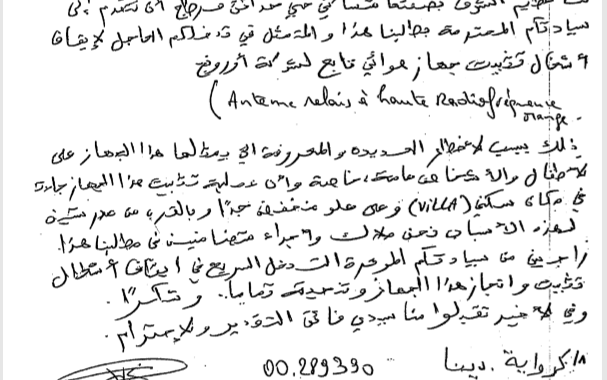 عظيم الشرف بصفتنا سكنا في حي حدائق أن نتقدم إلى
سيادتكم المحترمة بطلبنا هذا و المتمثل في تدخلكم العاجل لإيقاف
أشغال تثبيت جهاز هوائي تابع لشركة أورونج
(Antenne relais à haute Radiofréquence
orange.
ذلك بسبب لأخطار العديدة و المعروفة التي يمثلها هذا الجهاز على
لأطفال والأشخاص عامة، خاصة وأن عملية تثبيت هذا الجهاز جارية
في مكان سكني (VILLA) وعلى علو منخفض جدًا و بالقرب من مدرستين
لهذه الأسباب نحن ملاك و أجراء متضامنين في مطلبنا هذا.
راجين من سيادتكم الموقرة التدخل السريع في إيقاف أشغال
تثبيت و انجاز هذا الجهاز و تنحيته تماما. وشكرًا.
وفي لأخير تقبلوا منا سيدي فائق التقدير ولإحترام.
دينا
00.289390